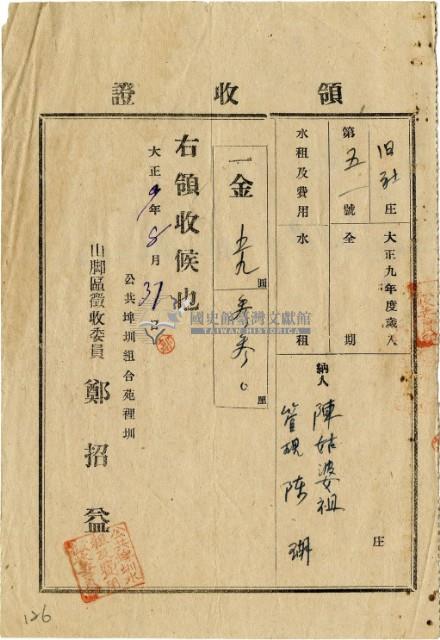 領收證
旧社庄 大正九年度歲入
第五一號 全期
水租及費用 水租
納人 陳姑婆祖
管理 陳瑚
庄
一金 圓 釐
右領收候也
大正9年8月31日
公共埤圳組合苑裡圳
山腳區徵收委員 鄭招益
國史館臺灣文獻館
TAIWAN HISTORICA
126